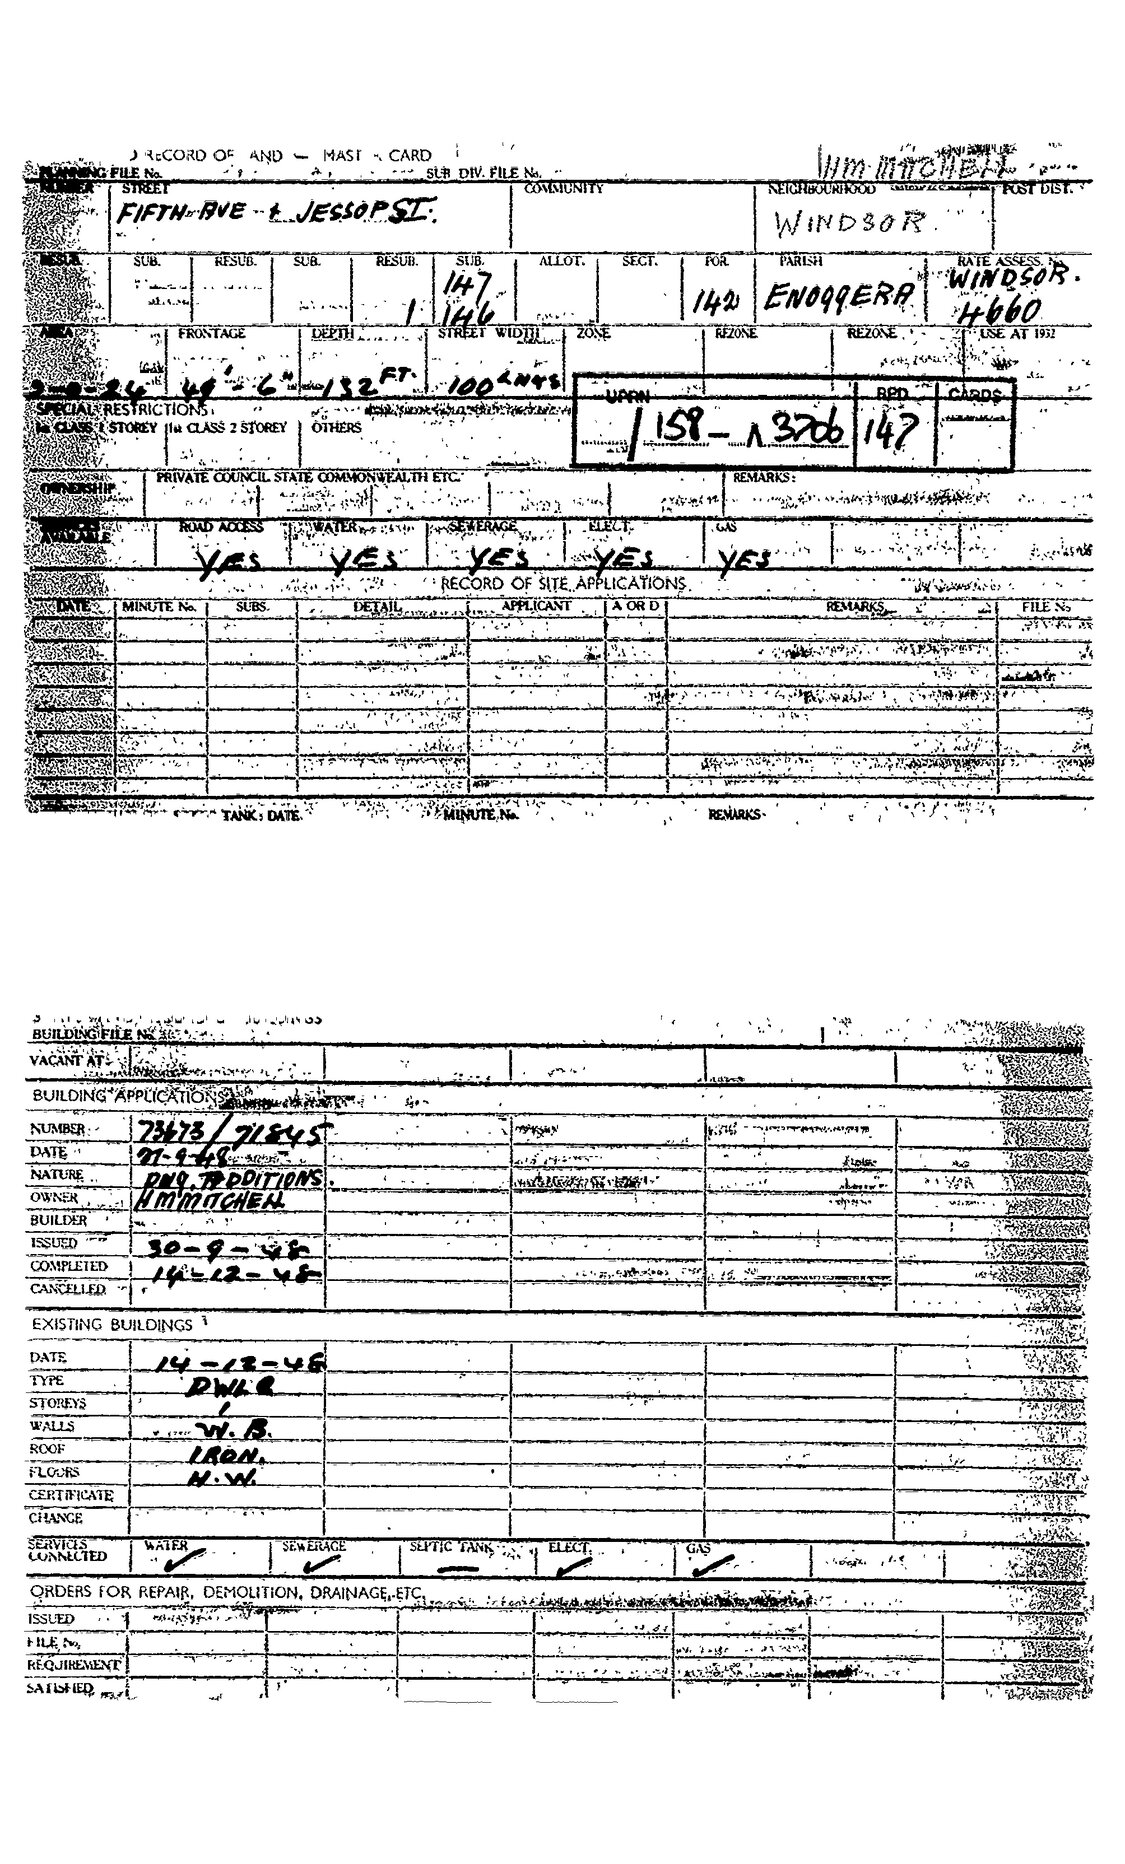 RECORD OF AND — MAST CARD
PLANNING FILE No. SUB DIV. FILE No. MITCHELL
NUMBER STREET COMMUNITY NEIGHBOURHOOD POST DIST.
FIFTH AVE + JESSOP ST. WINDSOR.
RESUB. SUB. RESUB. SUB. RESUB. SUB. ALLOT. SECT. POR. PARISH RATE ASSESS. No.
147 WINDSOR.
1 146 142 ENOGGERA 4660
AREA FRONTAGE DEPTH STREET WIDTH ZONE REZONE REZONE USE AT 1952
49' - 6" 132 FT. 100 LNKS
SPECIAL RESTRICTIONS: UPRN RPD CARDS
1st CLASS 1 STOREY 1st CLASS 2 STOREY OTHERS
/ 158 - 3706 147
OWNERSHIP PRIVATE COUNCIL STATE COMMONWEALTH ETC. REMARKS:
SERVICES AVAILABLE ROAD ACCESS WATER SEWERAGE ELECT. GAS
YES YES YES YES YES
RECORD OF SITE APPLICATIONS
DATE MINUTE No. SUBS. DETAIL APPLICANT A OR D REMARKS FILE No
TANK: DATE. MINUTE No. REMARKS
BUILDING FILE No.
VACANT AT:
BUILDING APPLICATIONS
NUMBER 73673 / 71845
DATE 27-9-48
NATURE DWG. ADDITIONS.
OWNER MITCHELL
BUILDER
ISSUED 30-9-48
COMPLETED 14-12-48
CANCELLED
EXISTING BUILDINGS
DATE 14-12-48
TYPE DWLG
STOREYS 1
WALLS W.B.
ROOF IRON.
FLOORS H.W.
CERTIFICATE
CHANGE
SERVICES CONNECTED WATER ✓ SEWERAGE ✓ SEPTIC TANK — ELECT. ✓ GAS ✓
ORDERS FOR REPAIR, DEMOLITION, DRAINAGE, ETC.
ISSUED
FILE No.
REQUIREMENT
SATISFIED